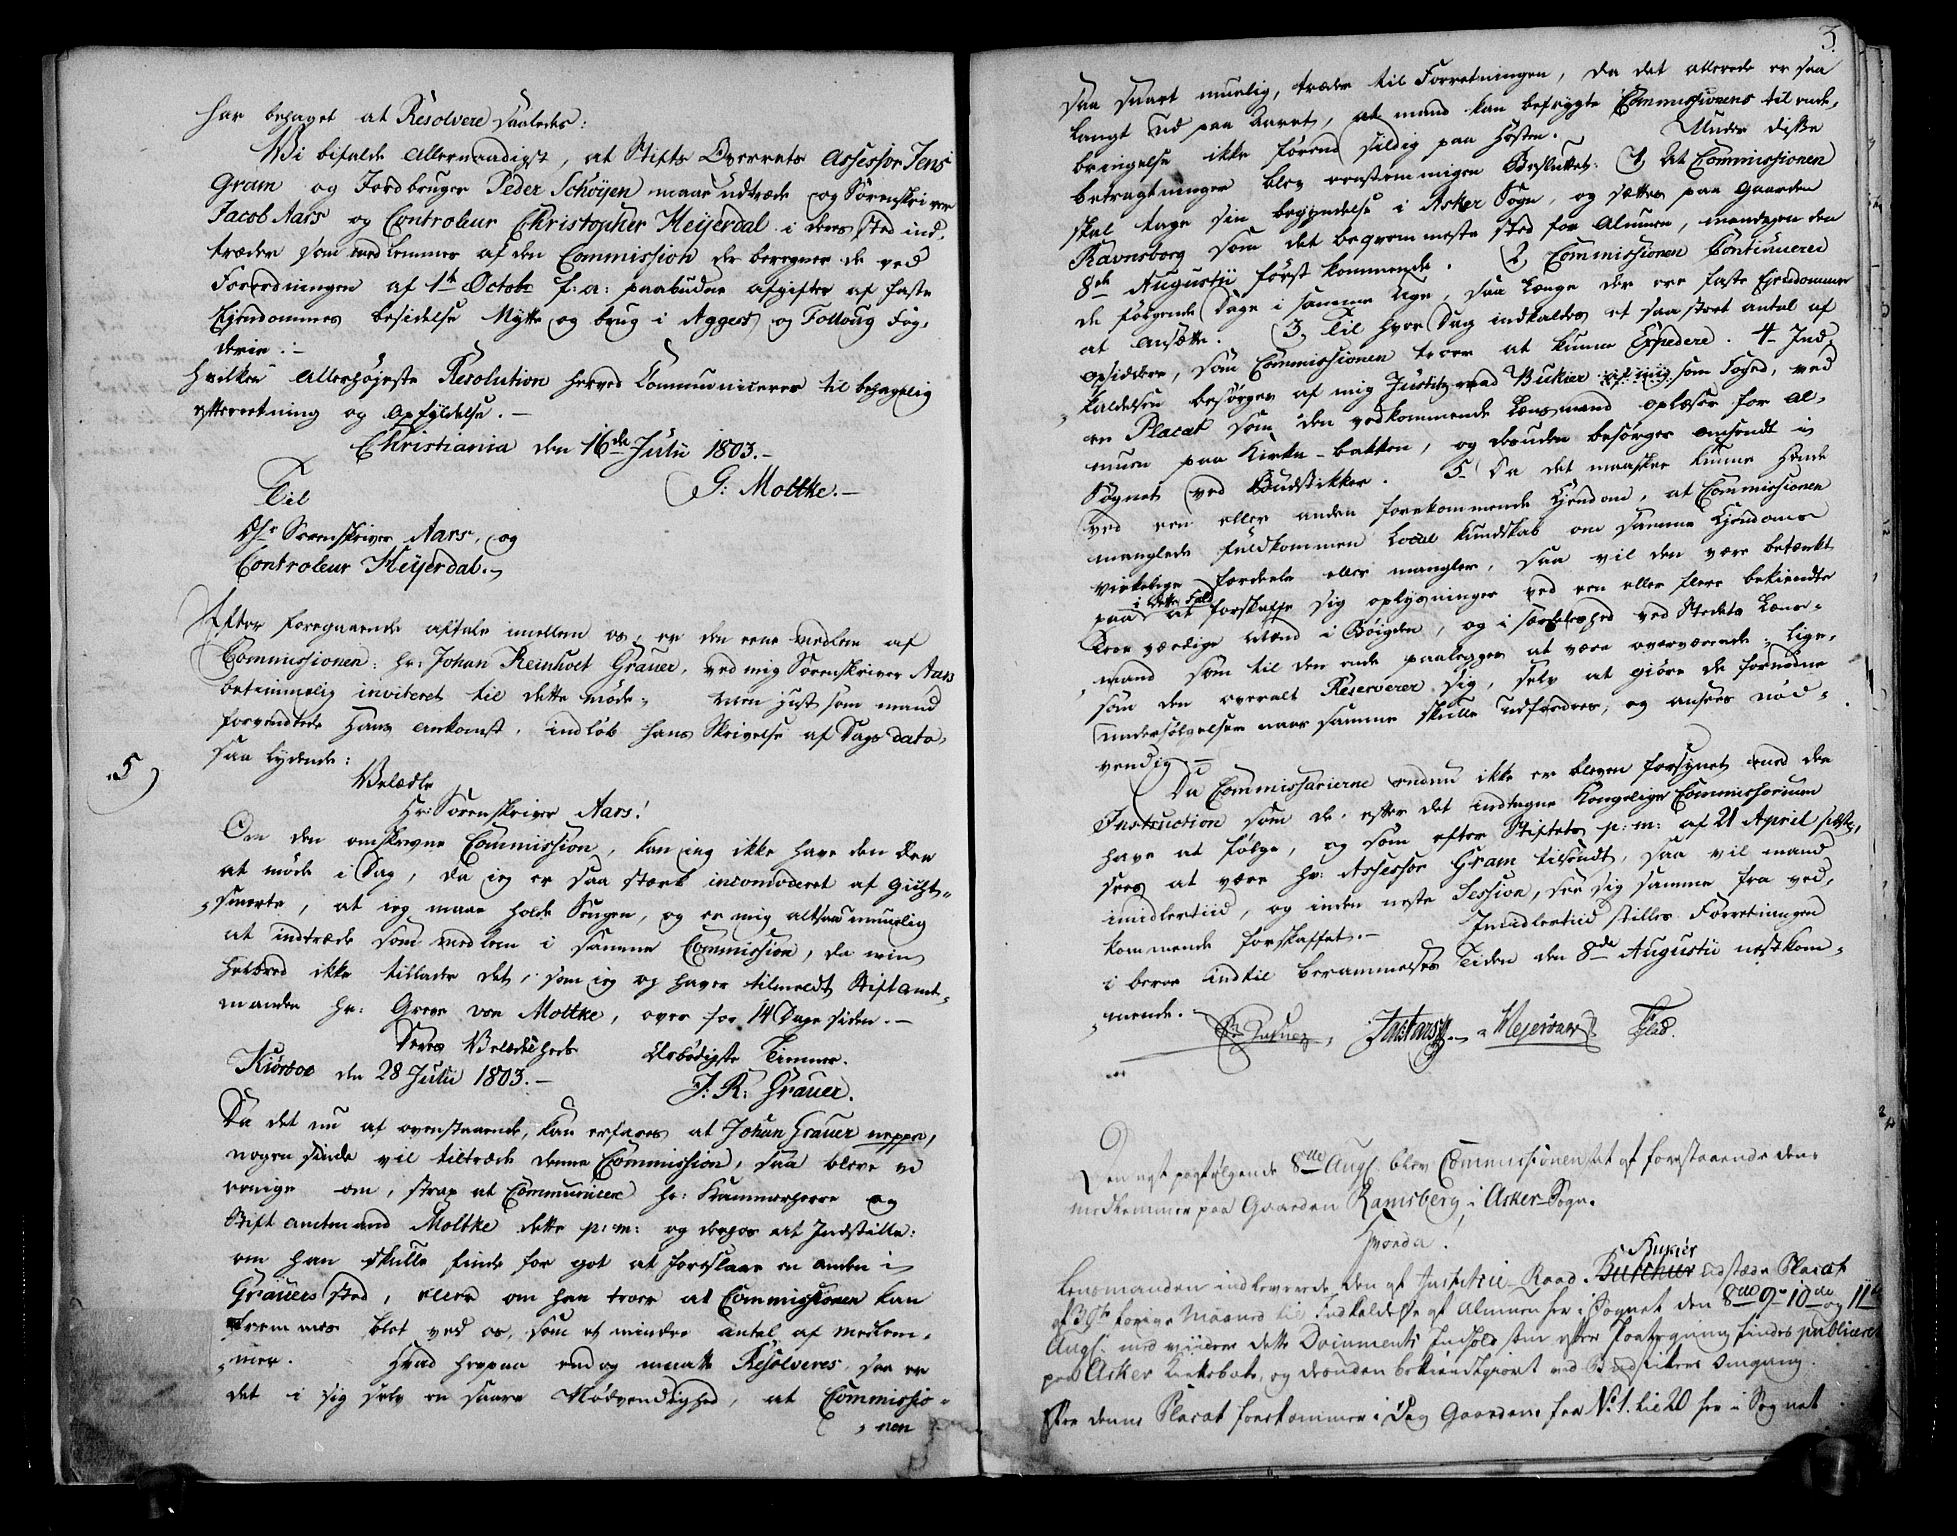 har behaget at Resolvere saaledes:
Vi bifalde Allernaadigst, at Stifts Overrets Assessor Jens
Gram og Jordbruger Peder Schöyen maae udtræde og Sorenskriver
Jacob Aars og Controleur Christopher Heyerdal i deres Sted ind,
træder som medlemmer af den Commission der beregner de ved
Forordningen af 1te Octobr f: a: paabudne afgifter af faste
Ejendommes besidelse Nytte og brug i Aggers og Folloug Fog,
derie.-
hvilken Allerhøjeste Resolution herved Communiceres til behagelig
efterretning og Opfyldelse.-
Christiania den 16de Julii 1803.-
G: Moltke.-
Til
Hr Sorenskriver Aars, og
Controleur Heyerdal.-
Efter foregaaende aftale imellem os, er den eene medlem af
Commissionen: hr: Johan Reinholt Grauer, ved mig Sorenskriver Aars
betimmelig inviteret til dette møde; men just som mand
forventede Hans ankomst, indløb hans Skrivelse af Dags dato,
saa lydende:
5)
Velædle
Hr: Sorenskriver Aars!
Om den omskrevne Commission, kan ieg ikke have den Ære
at møde i Dag, da ieg er saa stærk incomoderet af Gigt-
smerte, at ieg maae holde Sengen, og er mig altsaa umuelig
at indtræde som medlem i samme Commission, da min
helbred ikke tillader det, som ieg og haver tilmeldt Stiftamt-
manden hr: Greve von Moltke, over for 14 Dage siden.-
Deres Velædelheds Ærbødigste Tienner.
Kiørboe den 28 Julii 1803.-
J: R: Grauer.
Da det nu af ovenstaaende, kan erfares at Johan Grauer neppe,
nogen sinde vil tiltræde denne Commission, saa bleve vi
eenige om, strax at Communicere hr: Kammerherre og
Stiftamtmand Moltke dette p: m: og derhos at Indstille:
om han skulle finde for got at foreslaae en anden i
Grauers sted, eller om han troer at Commissionen kan
fremmes blot ved os, som et mindre antal af medlem-
mer. Hvad herpaa end og maatte Resolveres, saa er
det i sig selv en saare Nødvendighed, at Commissio-
nen
3.
saa snart muelig, træder til Forretningen, da det allerede er saa
langt ud paa Aaret, at mand kan befrygte Commissionens tilende,
bringelse ikke førend sildig paa Høsten. Under disse
betragtninger blev eenstemmigen Besluttet: 1, At Commissionen
skal tage sin begyndelse i Asker Sogn, og sættes paa Gaarden
Ravnsborg som det beqvemmeste sted for Almuen, mandagen den
8de Augustii først kommende. 2, Commissionen Continuerer
de følgende Dage i samme Uge, saa længe der ere faste Ejendomme
at ansætte. 3, Til hver Dag indkaldes et saa stort antal af
opsiddere, som Commissionen troer at kunne Expedere. 4- Ind,
kaldelsen besørges af mig Justitzraad Bukier af mig som Foged, ved
en Placat som den vedkommende Lænsmand oplæser for Al-
muen paa Kirke-bakken, og desuden besørges omsendt i
Sognet ved Budstikker. 5- Da det maaskee kunne hende
ved een eller anden forekommende Ejendom, at Commissionen
manglede fuldkommen Local kundskab om samme Ejendoms
virkelige fordeele eller mangler, saa vil den være betænkt
i dette Fald
paa at forskaffe sig oplysninger ved een eller flere bekiendte
Troeværdige Mænd i Bøigden, og i særdeleshed ved Stedets Læns-
mand som til den ende paalegges at være overværende; lige-
som den overalt Reserverer sig, selv at giöre de fornødne
undersøgelser naar samme skulle udfordres, og ansees nød-
vendig.-
Da Commissarierne endnu ikke er bleven forsynet med den
Instruction som de, efter det indtagne Kongelige Commissorium
have at følge, og som efter Stiftets p: m: af 21 April sidste,
sees at være hr: Assessor Gram tilsendt, saa vil mand
imidlertiid, og inden neste Session, see sig samme fra ved,
kommende forskaffet.- Imidlertiid stilles Forretningen
i beroe indtil berammelses Tiden den 8de Augustii nestkom-
mende.-
Jac Aars Heyerdahl
Den nest paafølgende 8de Augs. blev Commissionen sat af forestaaende dens
medlemmer paa Gaarden Ramsberg i Asker Sogn.
Hvorda!
Bukiér
Lensmanden indleverede den af Justitie Raad. Burchier udstædte Placat
af forige Maaned til Indkaldelse af Almuen her i Sognet den 8de 9de 10de og 11te
Augs. med videre dette Documents Indhold som efter Paategning findes publiceret
paa Asker Kirkebake, og desuden bekiendtgiort ved Budstikens Omgang.
Efter denne Placat forekommer i Dag Gaardene fra No 1. til 20 her i Sognet